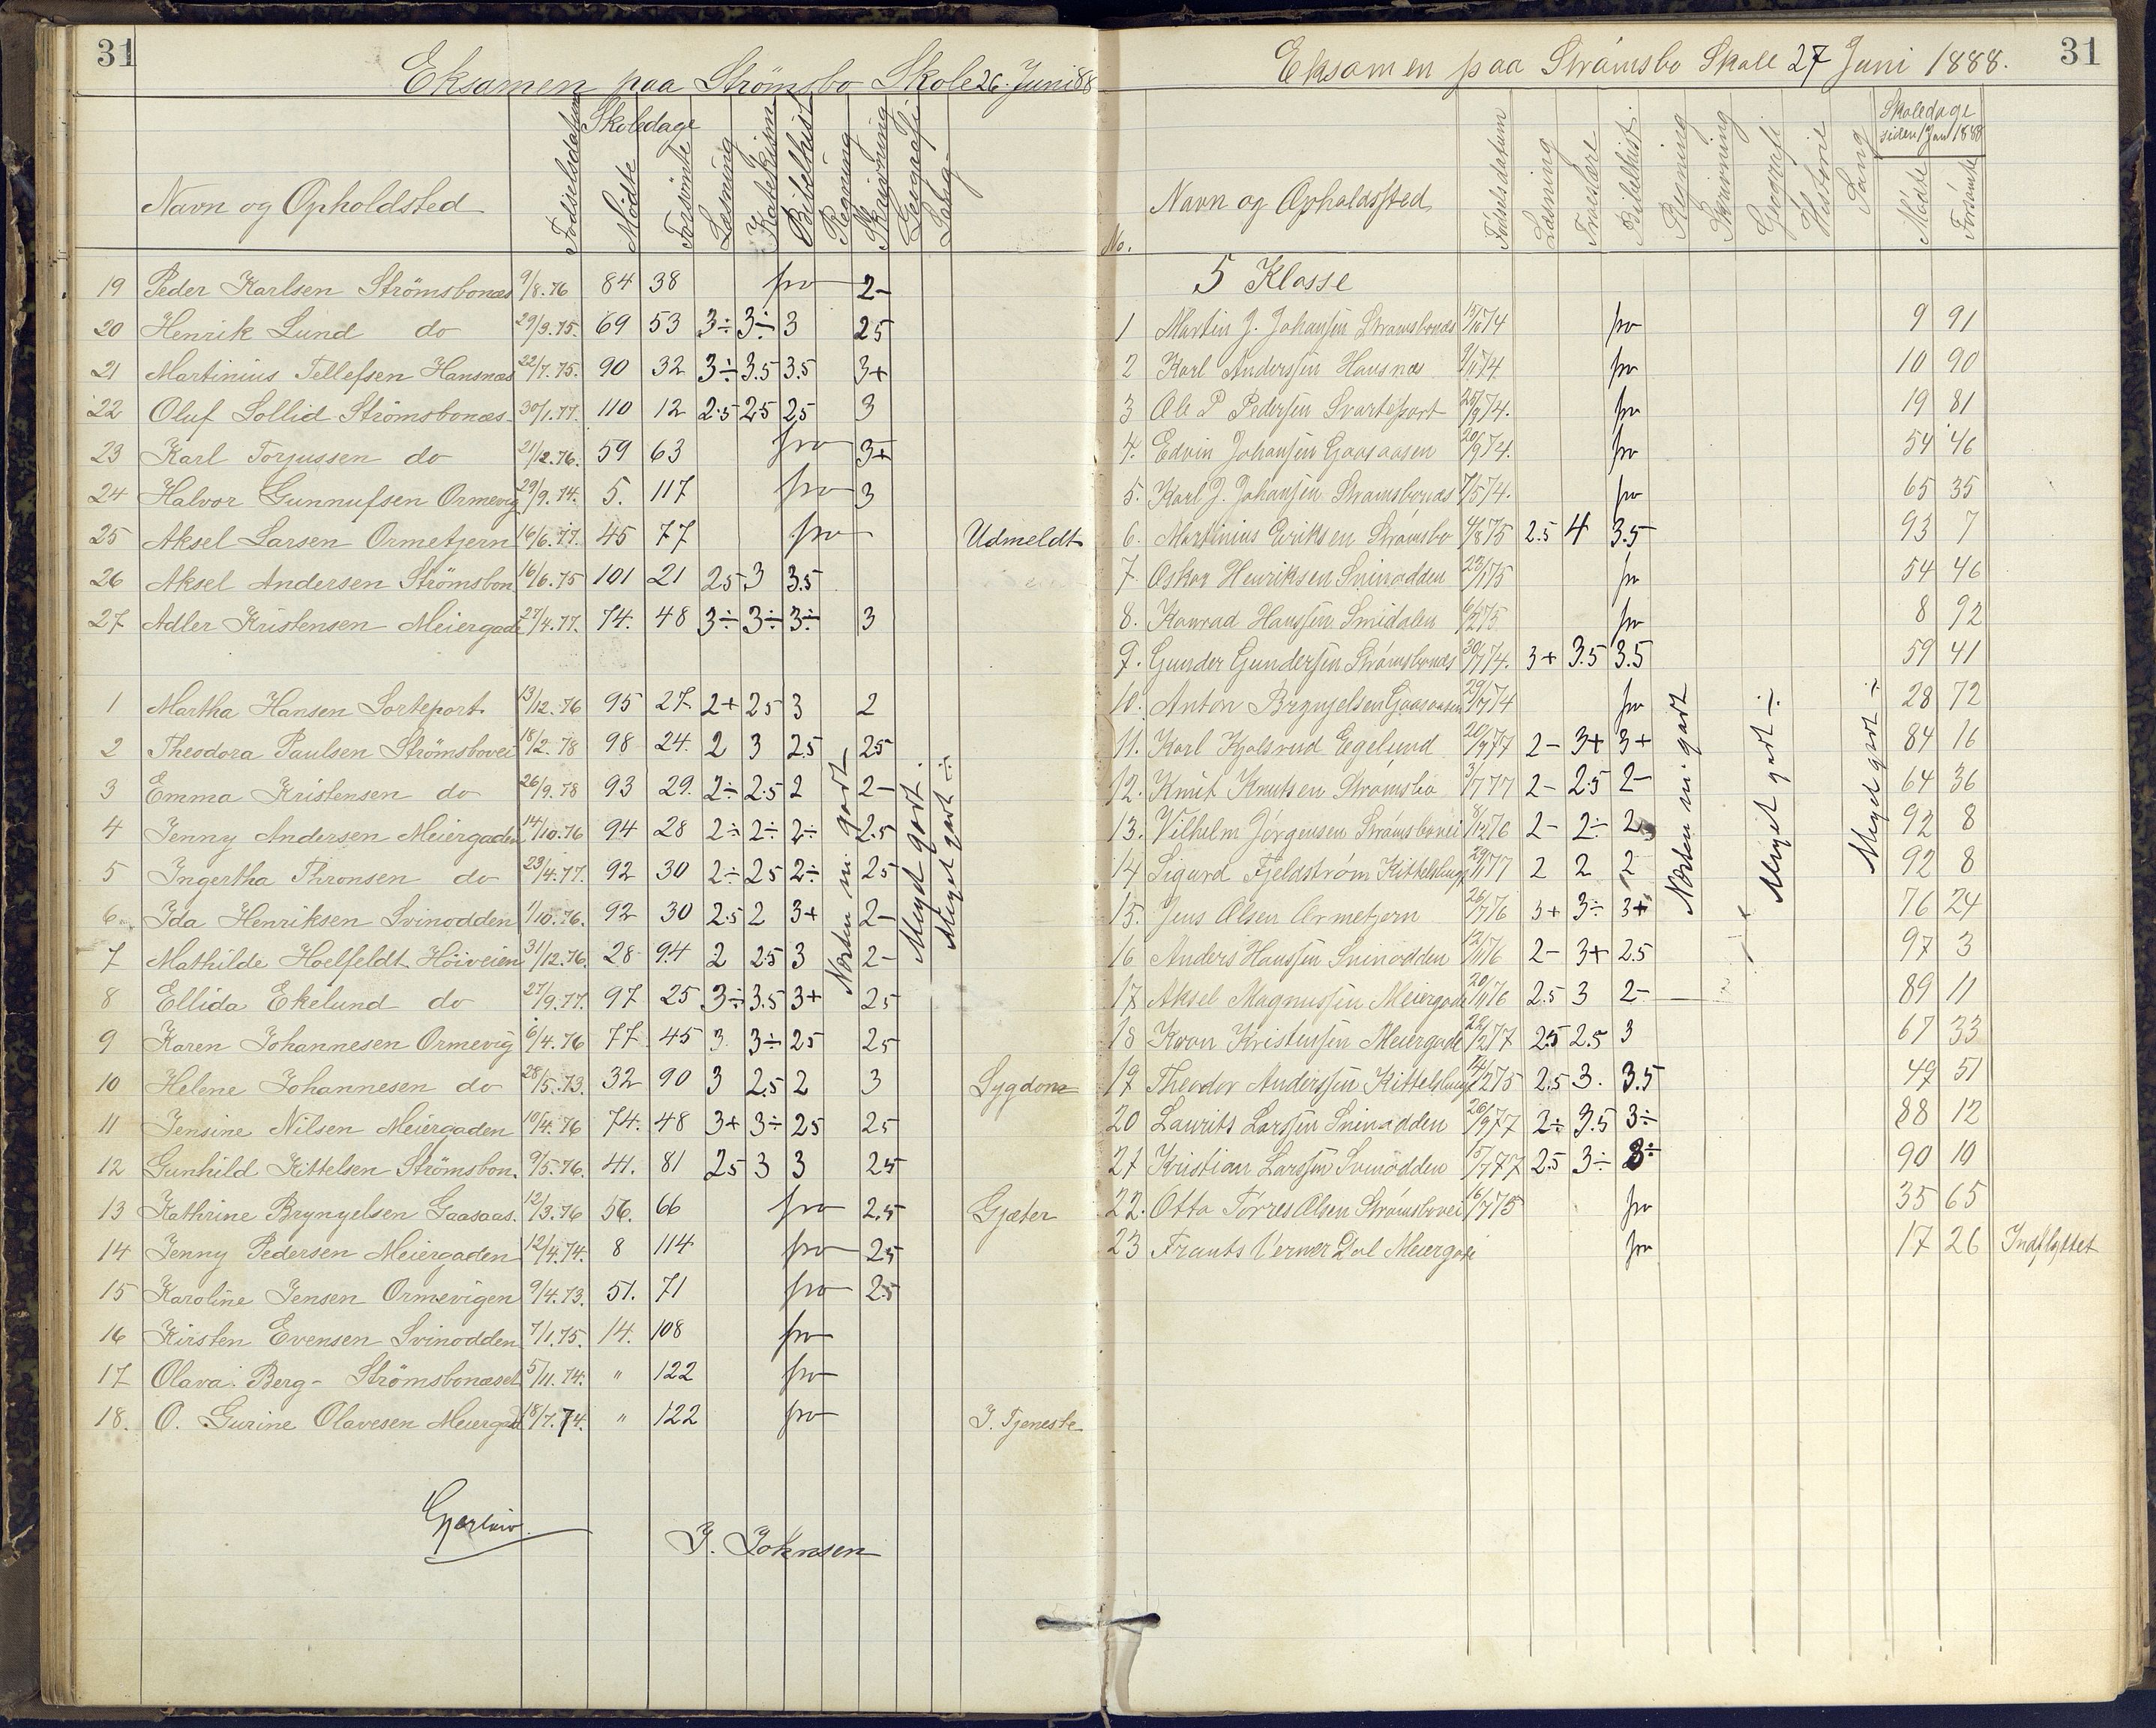 31
Eksamen paa Strömsbo Skole 26. Juni 88
Navn og Opholdsted Fødselsdatum Skoledage Mödte Forsömte Læsning Katekisme Bibelhist Regning Skrivning Geografi Sang
19 Peder Karlsen Strömsbonæs 9/8.76 84 38 fra 2-
20 Henrik Lund do 29/3.75. 69 53 3÷ 3÷ 3 25
21 Martinius Tellefsen Hansnæs 22/7.75. 90 32 3÷ 3.5 3.5 3+
22 Oluf Sollid Strömsbonæs 30/1.77. 110 12 2.5 25 25 3
23 Karl Torjussen do 21/12.76. 59 63 fra 3+
24 Halvor Gunnufsen Ormevig 29/9.74. 5. 117 fra 3
25 Aksel Larsen Ormetjern 16/6.77. 45 77 fra Udmeldt
26 Aksel Andersen Strömsbon 16/6.75 101 21 25 3 3.5
27 Adler Kristensen Meiergade 27/4.77. 74. 48 3÷ 3÷ 3÷ 3
1 Martha Hansen Sorteport 13/12.76 95 27 2+ 25 3 2
2 Theodora Paulsen Strömsbovei 18/2.78 98 24. 2 3 2.5 25
3 Emma Kristensen do 26/9.78 93 29. 2÷ 2.5 2 2-
4 Jenny Andersen Meiergaden 14/10.76 94 28 2÷ 2÷ 2÷ 2.5
5 Ingertha Thronsen do 23/4.77. 92 30 2÷ 25 2÷ 25
6 Ida Henriksen Svinodden 1/10.76. 92 30 2.5 2 3+ 2-
7 Mathilde Hoelfeldt Höiveien 31/12.76. 28 94 2 25 3 2-
8 Ellida Ekelund do 27/9.77. 97 25 3÷ 3.5 3+ 25
9 Karen Johannesen Ormevig 6/4.76 77 45 3 3÷ 25 25
10 Helene Johannesen do 28/5.73. 32 90 3 2.5 2 3 Sygdom
11 Jensine Nilsen Meiergaden 10/4.76 74. 48 3+ 3÷ 25 25
12 Gunhild Kittelsen Strömsbon. 9/5.76. 41. 81 25 3 3 25
13 Kathrine Brynyelsen Gaasaas. 12/3.76 56. 66 fra 2.5 Gjæter
14 Jenny Pedersen Meiergaden 12/4.74. 8 114 fra 25
15 Karoline Jensen Ormevigen 9/4.73. 51. 71 fra 2.5
16 Kirsten Evensen Svinodden 7/1.75. 14. 108 fra
17 Olava Berg - Strömsbonæset 5/11.74. " 122 fra
18. O. Gurine Olavesen Meiergad 18/7.74. " 122 fra I. Tjeneste
Næsten m. godt
Meget godt.
Meget godt ÷
J. Johnsen
31
Eksamen paa Strømsbo Skole 27 Juni 1888.
No. Navn og Opholdssted Fødselsdatum Læsning Troeslære Bibelhist. Regning Skrivning Geografi Historie Sang Skoledage siden 1 Jan 1888 Mødte Forsømte
5 Klasse
1 Martin J. Johansen Strømsbonæs 15/10 74 fra 9 91
2 Karl Anderssen Hansnæs 9/11 74. fra 10 90
3 Ole P Pedersen Svarteport 25/9 74. fra 19 81
4. Edvin Johansen Gaasaasen 20/9 74. fra 54 46
5. Karl J. Johansen Strømsbonæs 7/5 74. fra 65 35
6. Martinius Eriksen Strømsbo 4/8 75 2.5 4 3.5 93 7
7. Oskar Henriksen Svinodden 23/1 75 fra 54 46
8. Konrad Hanssen Smidalen 6/2 75 fra 8 92
9. Gunder Gundersen Strømsbonæs 30/7 74. 3+ 3.5 3.5 59 41
10. Anton Brynjelsen Gaasaasen 29/7 74 fra 28 72
11. Karl Kjolsrud Egelund 20/9 77 2- 3+ 3+ 84 16
12. Knut Knutsen Strømsbo 3/7 77 2- 2.5 2- 64 36
13. Vilhelm Jørgensen Strømsbovei 8/12 76 2- 2÷ 2 92 8
14 Sigurd Fjeldstrøm Kittelsbugt 29/1 77 2 2 2 92 8
15. Jens Olsen Ormetjern 26/7 76 3+ 3÷ 3+ 76 24
16 Anders Hanssen Svinodden 12/11 76 2- 3+ 2.5 97 3
17 Aksel Magnussen Meiergade 20/11 76 2.5 3 2- 89 11
18 Kristensen Meiergade 22/2 77 25 2.5 3 67 33
19 Theodor Anderssen Kittelsbugt 14/12 75 2.5 3. 3.5 49 51
20 Laurits Larssen Svinodden 26/9 77 2÷ 3.5 3÷ 88 12
21 Kristian Larssen Svinodden 15/7 77 25 3÷ 3÷ 90 10
22. Otto Tørres Olsen Strømsbovei 16/7 75 fra 35 65
23 Frants Verner Dal Meiergade fra 17 26 Indflyttet
Næsten m. godt
Meget godt ÷
Meget godt ÷